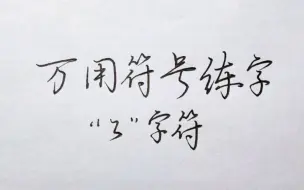 万用符号练字
“ろ”字符